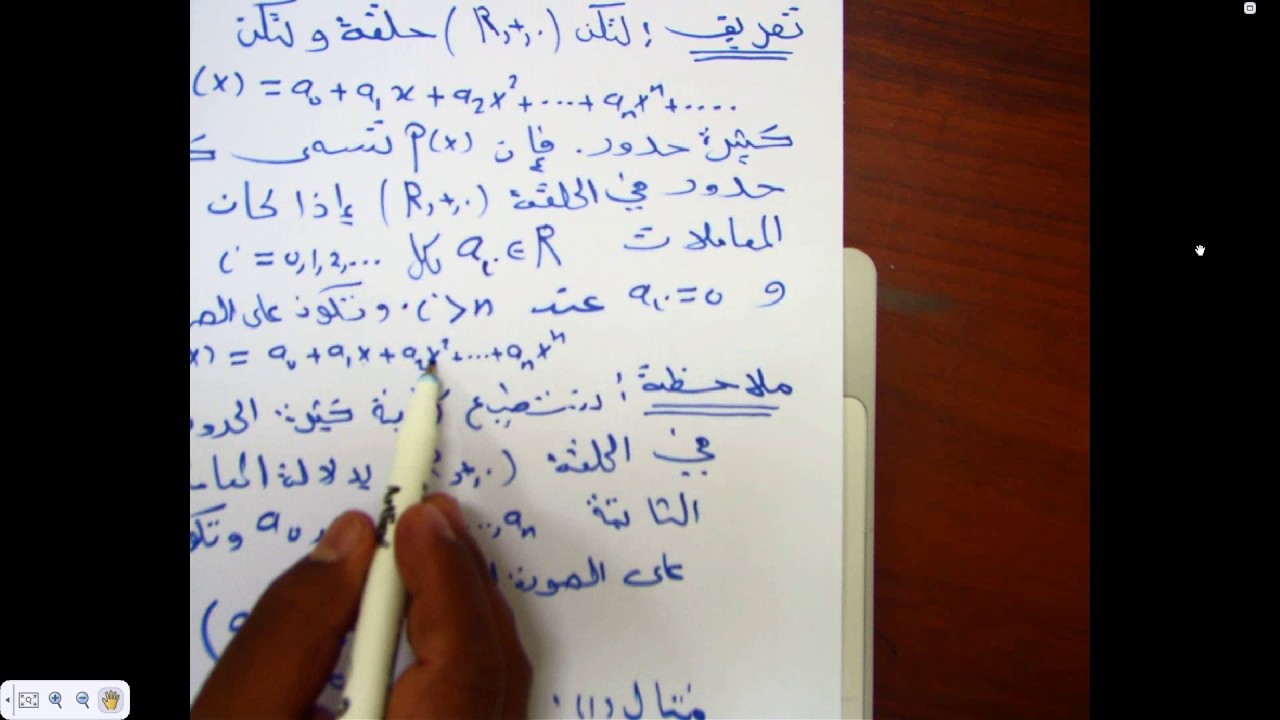 تعريف : لتكن (R,+,.) حلقة ولتكن
(x) = a₀ + a₁x + a₂x² + ... + aₙxⁿ + ....
كثيرة حدود. فإن P(x) تسمى
حدود في الحلقة (R,+,.) إذا كان
المعاملات aᵢ ∈ R لكل i = 0,1,2,...
و aᵢ = 0 عند i > n. وتكون على
x) = a₀ + a₁x + a₂x² + ... + aₙxⁿ
ملاحظة : نستطيع كثيرة
في الحلقة ,+,.) بدلالة
الثابتة a₀ ...,aₙ
على الصورة
(a
مثال (1) :